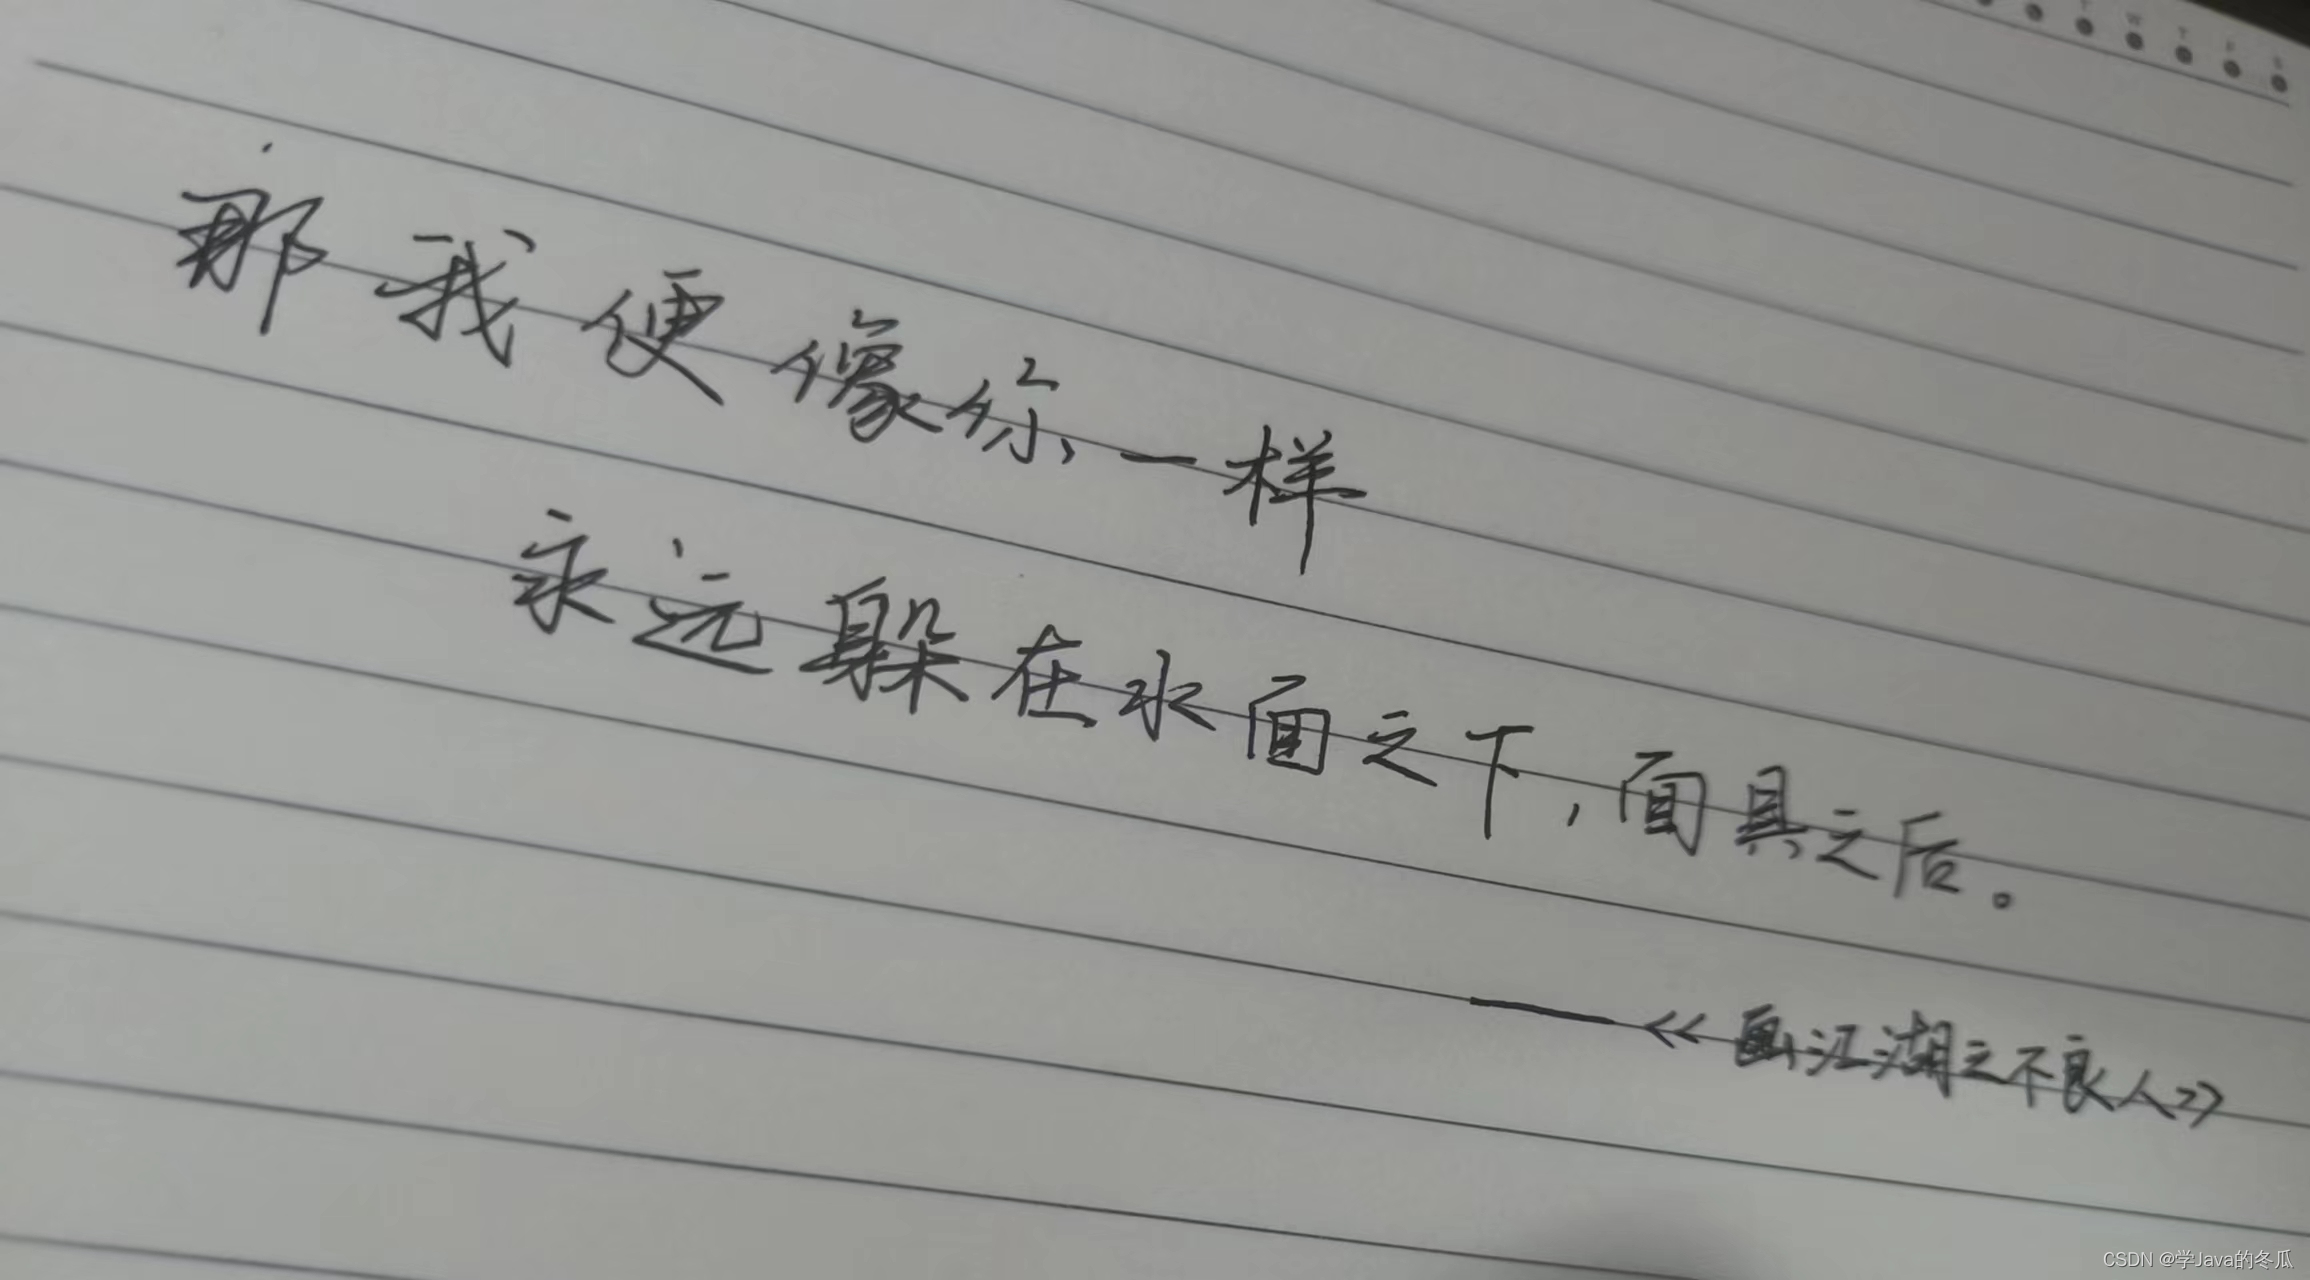 T W T F S
那我便像你一样
永远躲在水面之下，面具之后。
——《画江湖之不良人》
CSDN @学Java的冬瓜